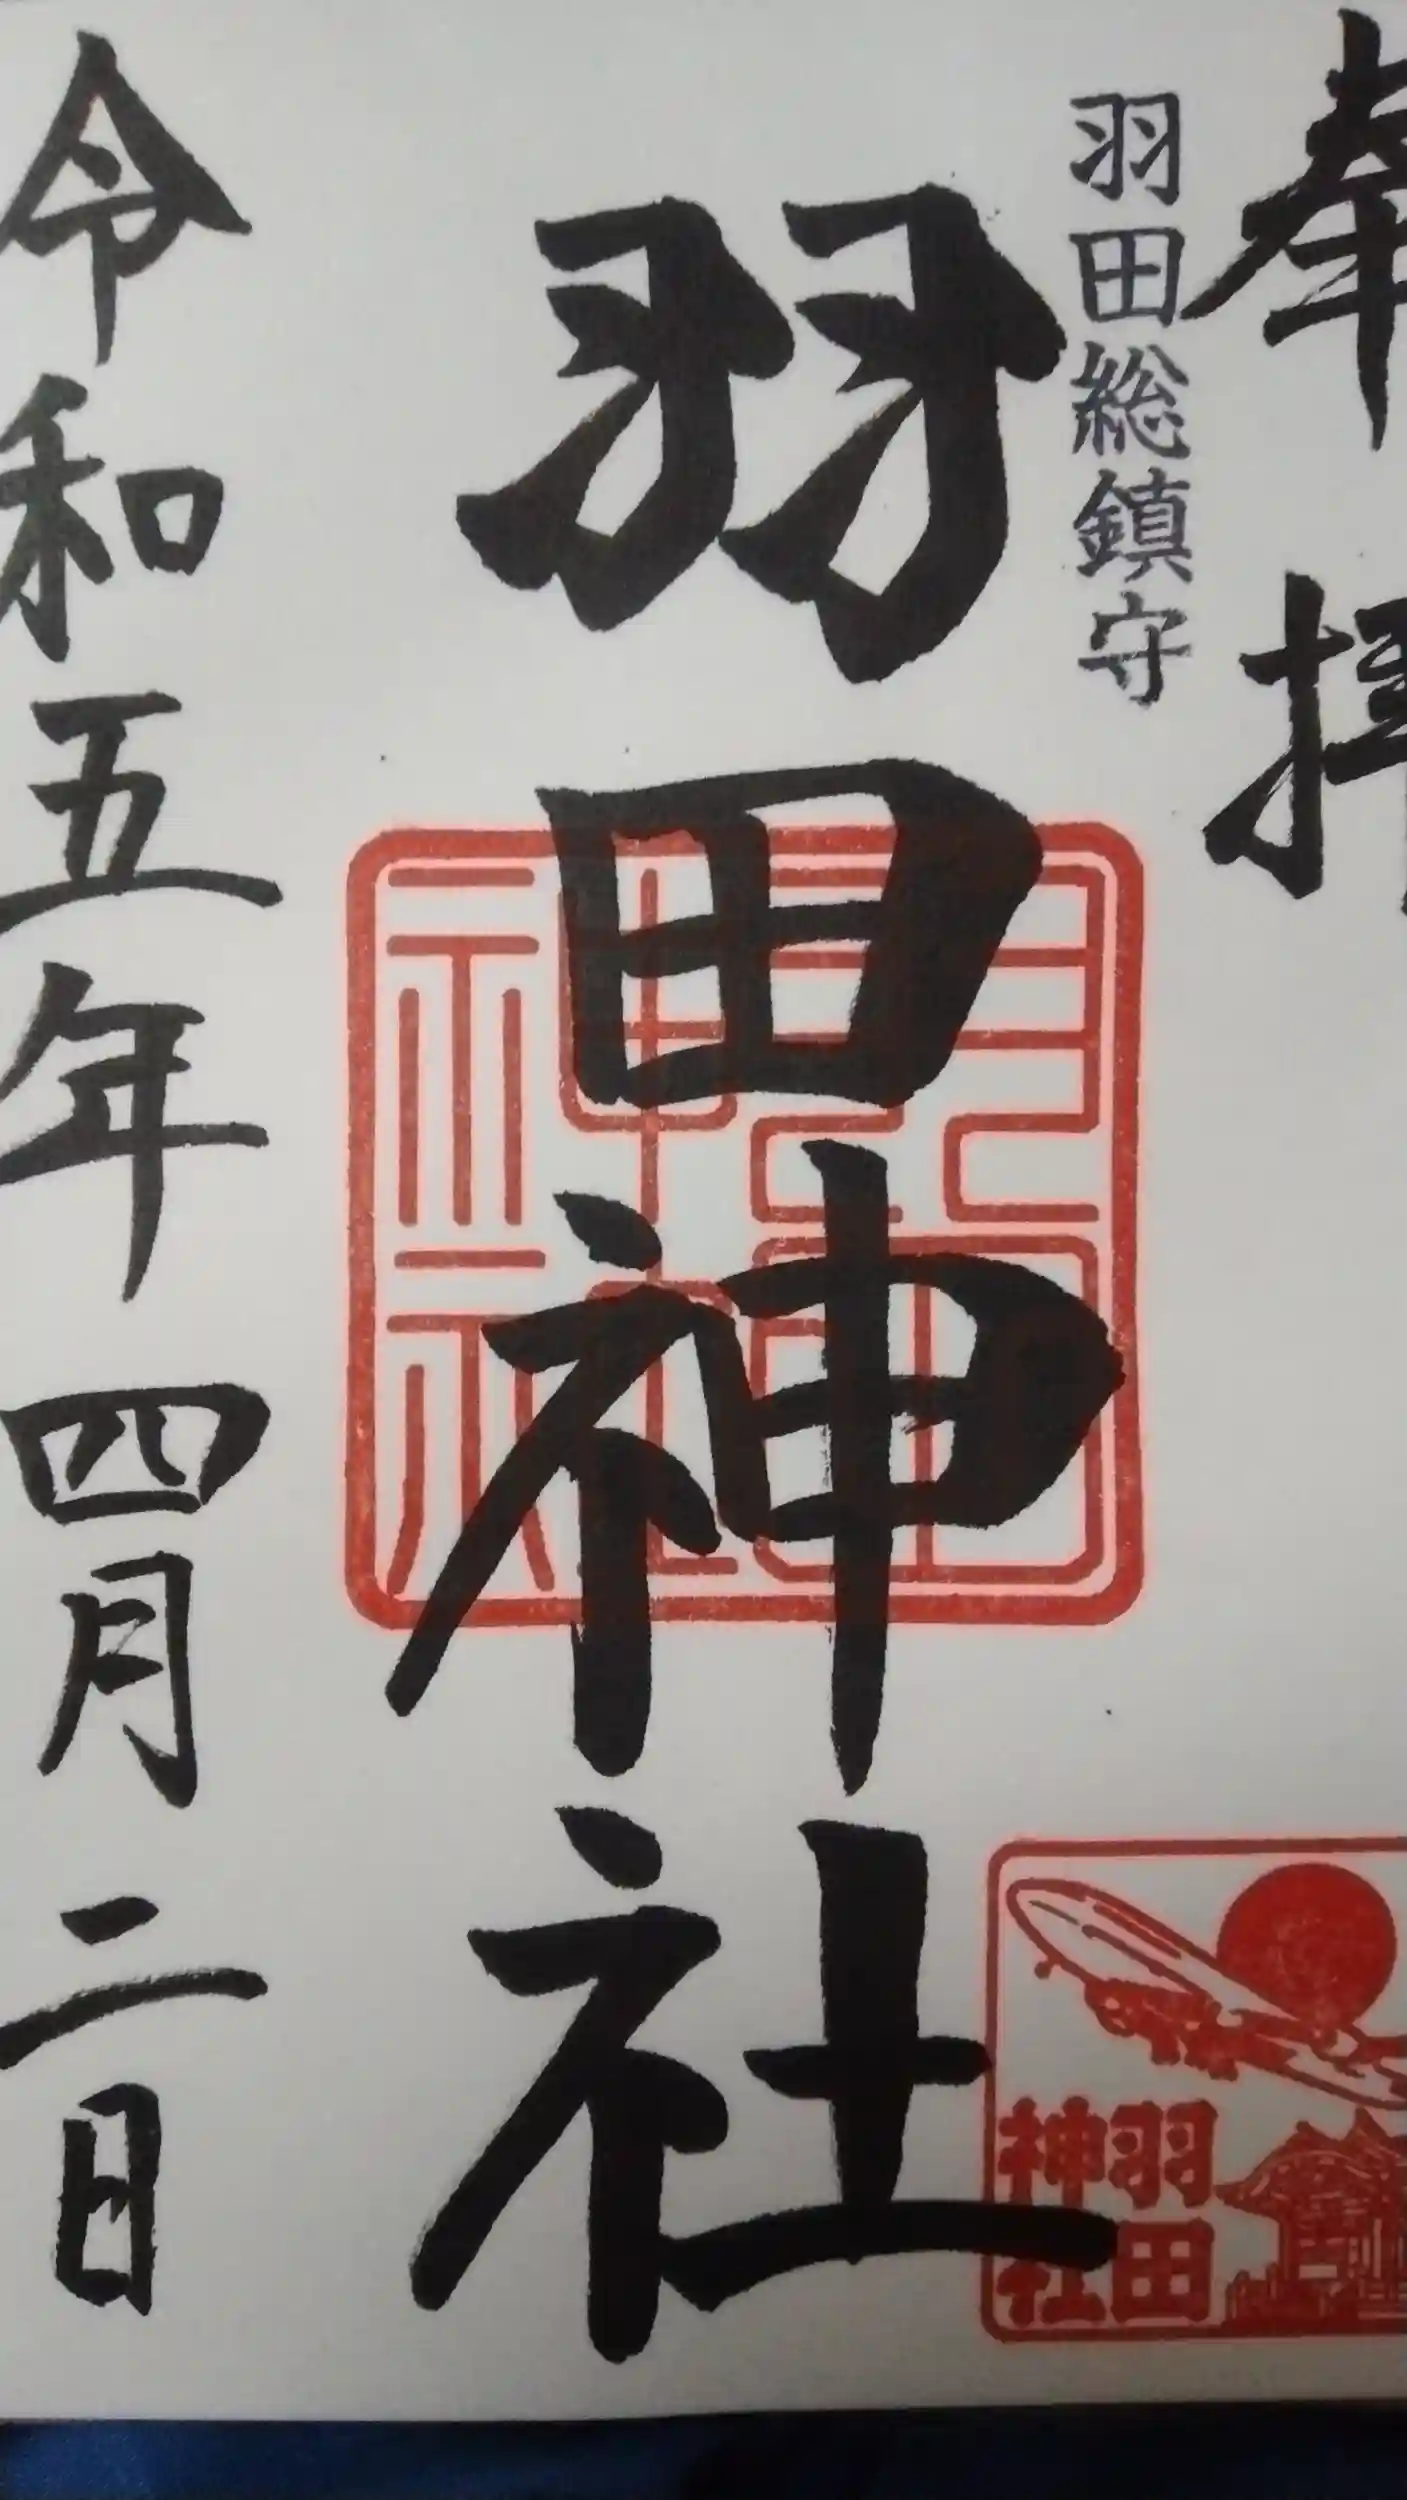 奉拝
羽田総鎮守
羽田神社
羽田神社
羽田
神社
令和五年四月二日